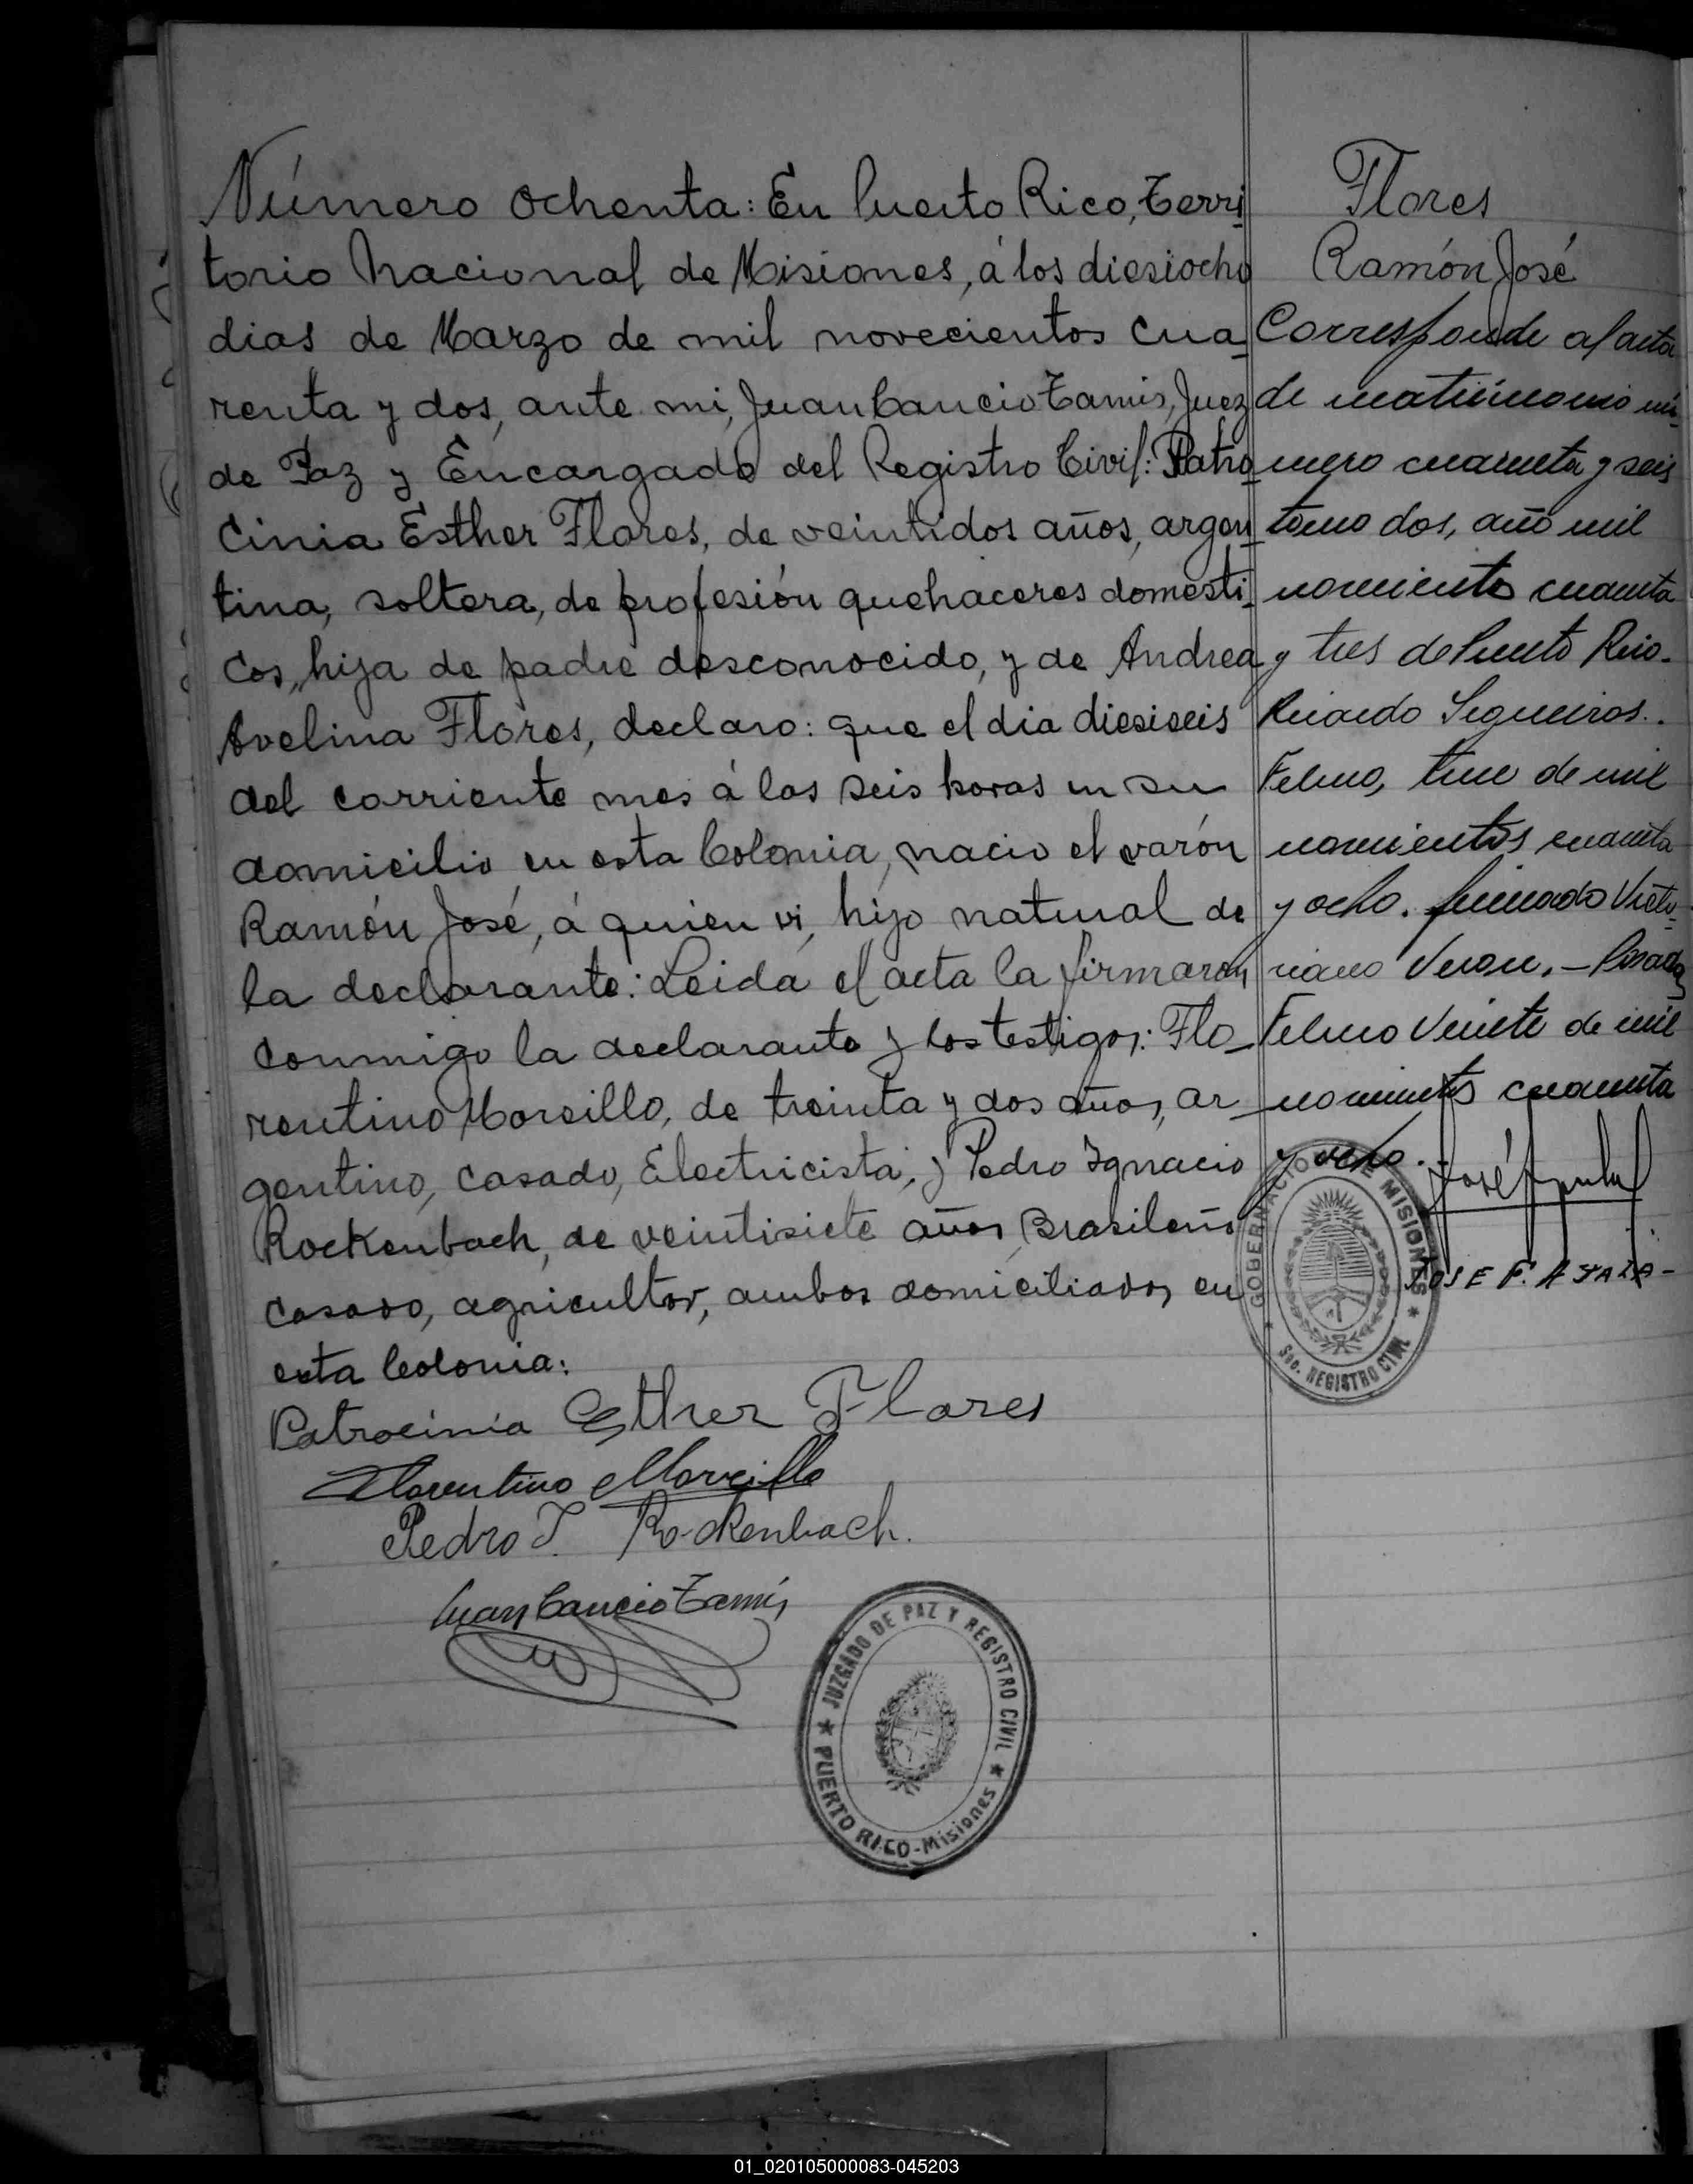 Número ochenta: En Puerto Rico, Terri-
torio Nacional de Misiones, á los diesiocho
dias de Marzo de mil novecientos cua-
renta y dos, ante mi, Juan Cancio Tamis, Juez
de Paz y Encargado del Registro Civil: Patro-
cinia Esther Flores, de veintidos años, argen-
tina, soltera, de profesión quehaceres domesti-
cos, hija de padre desconocido, y de Andrea
Avelina Flores, declaro: que el dia diesiseis
del corriente mes á las seis horas en su
domicilio en esta Colonia, nacio el varón
Ramón José, á quien vi, hijo natural de
la declarante: Leida el acta la firmaron
conmigo la declarante y los testigos: Flo-
rentino Morcillo, de treinta y dos años, ar-
gentino, casado, Electricista, y Pedro Ignacio
Rockenbach, de veintisiete años, Brasileño
casado, agricultor, ambos domiciliados en
esta Colonia:
Patrocinia Esther Flores
Florentino Morcillo
Pedro I. Rockenbach.
Juan Cancio Tamis
JUZGADO DE PAZ Y REGISTRO CIVIL
PUERTO RICO-Misiones
Flores
Ramón José
Corresponde al acta
de matrimonio nú-
mero cuarenta y seis
tomo dos, año mil
novecientos cuarenta
y tres de Puerto Rico.
Ricardo Sequeiros.
Febrero, trece de mil
novecientos cuarenta
y ocho. firmado Victo-
riano Veron. - Posadas
Febrero Veinte de mil
novecientos cuarenta
y ocho.
JOSE F. AYALA-
GOBERNACION DE MISIONES
Sec. REGISTRO CIVIL
01_020105000083-045203